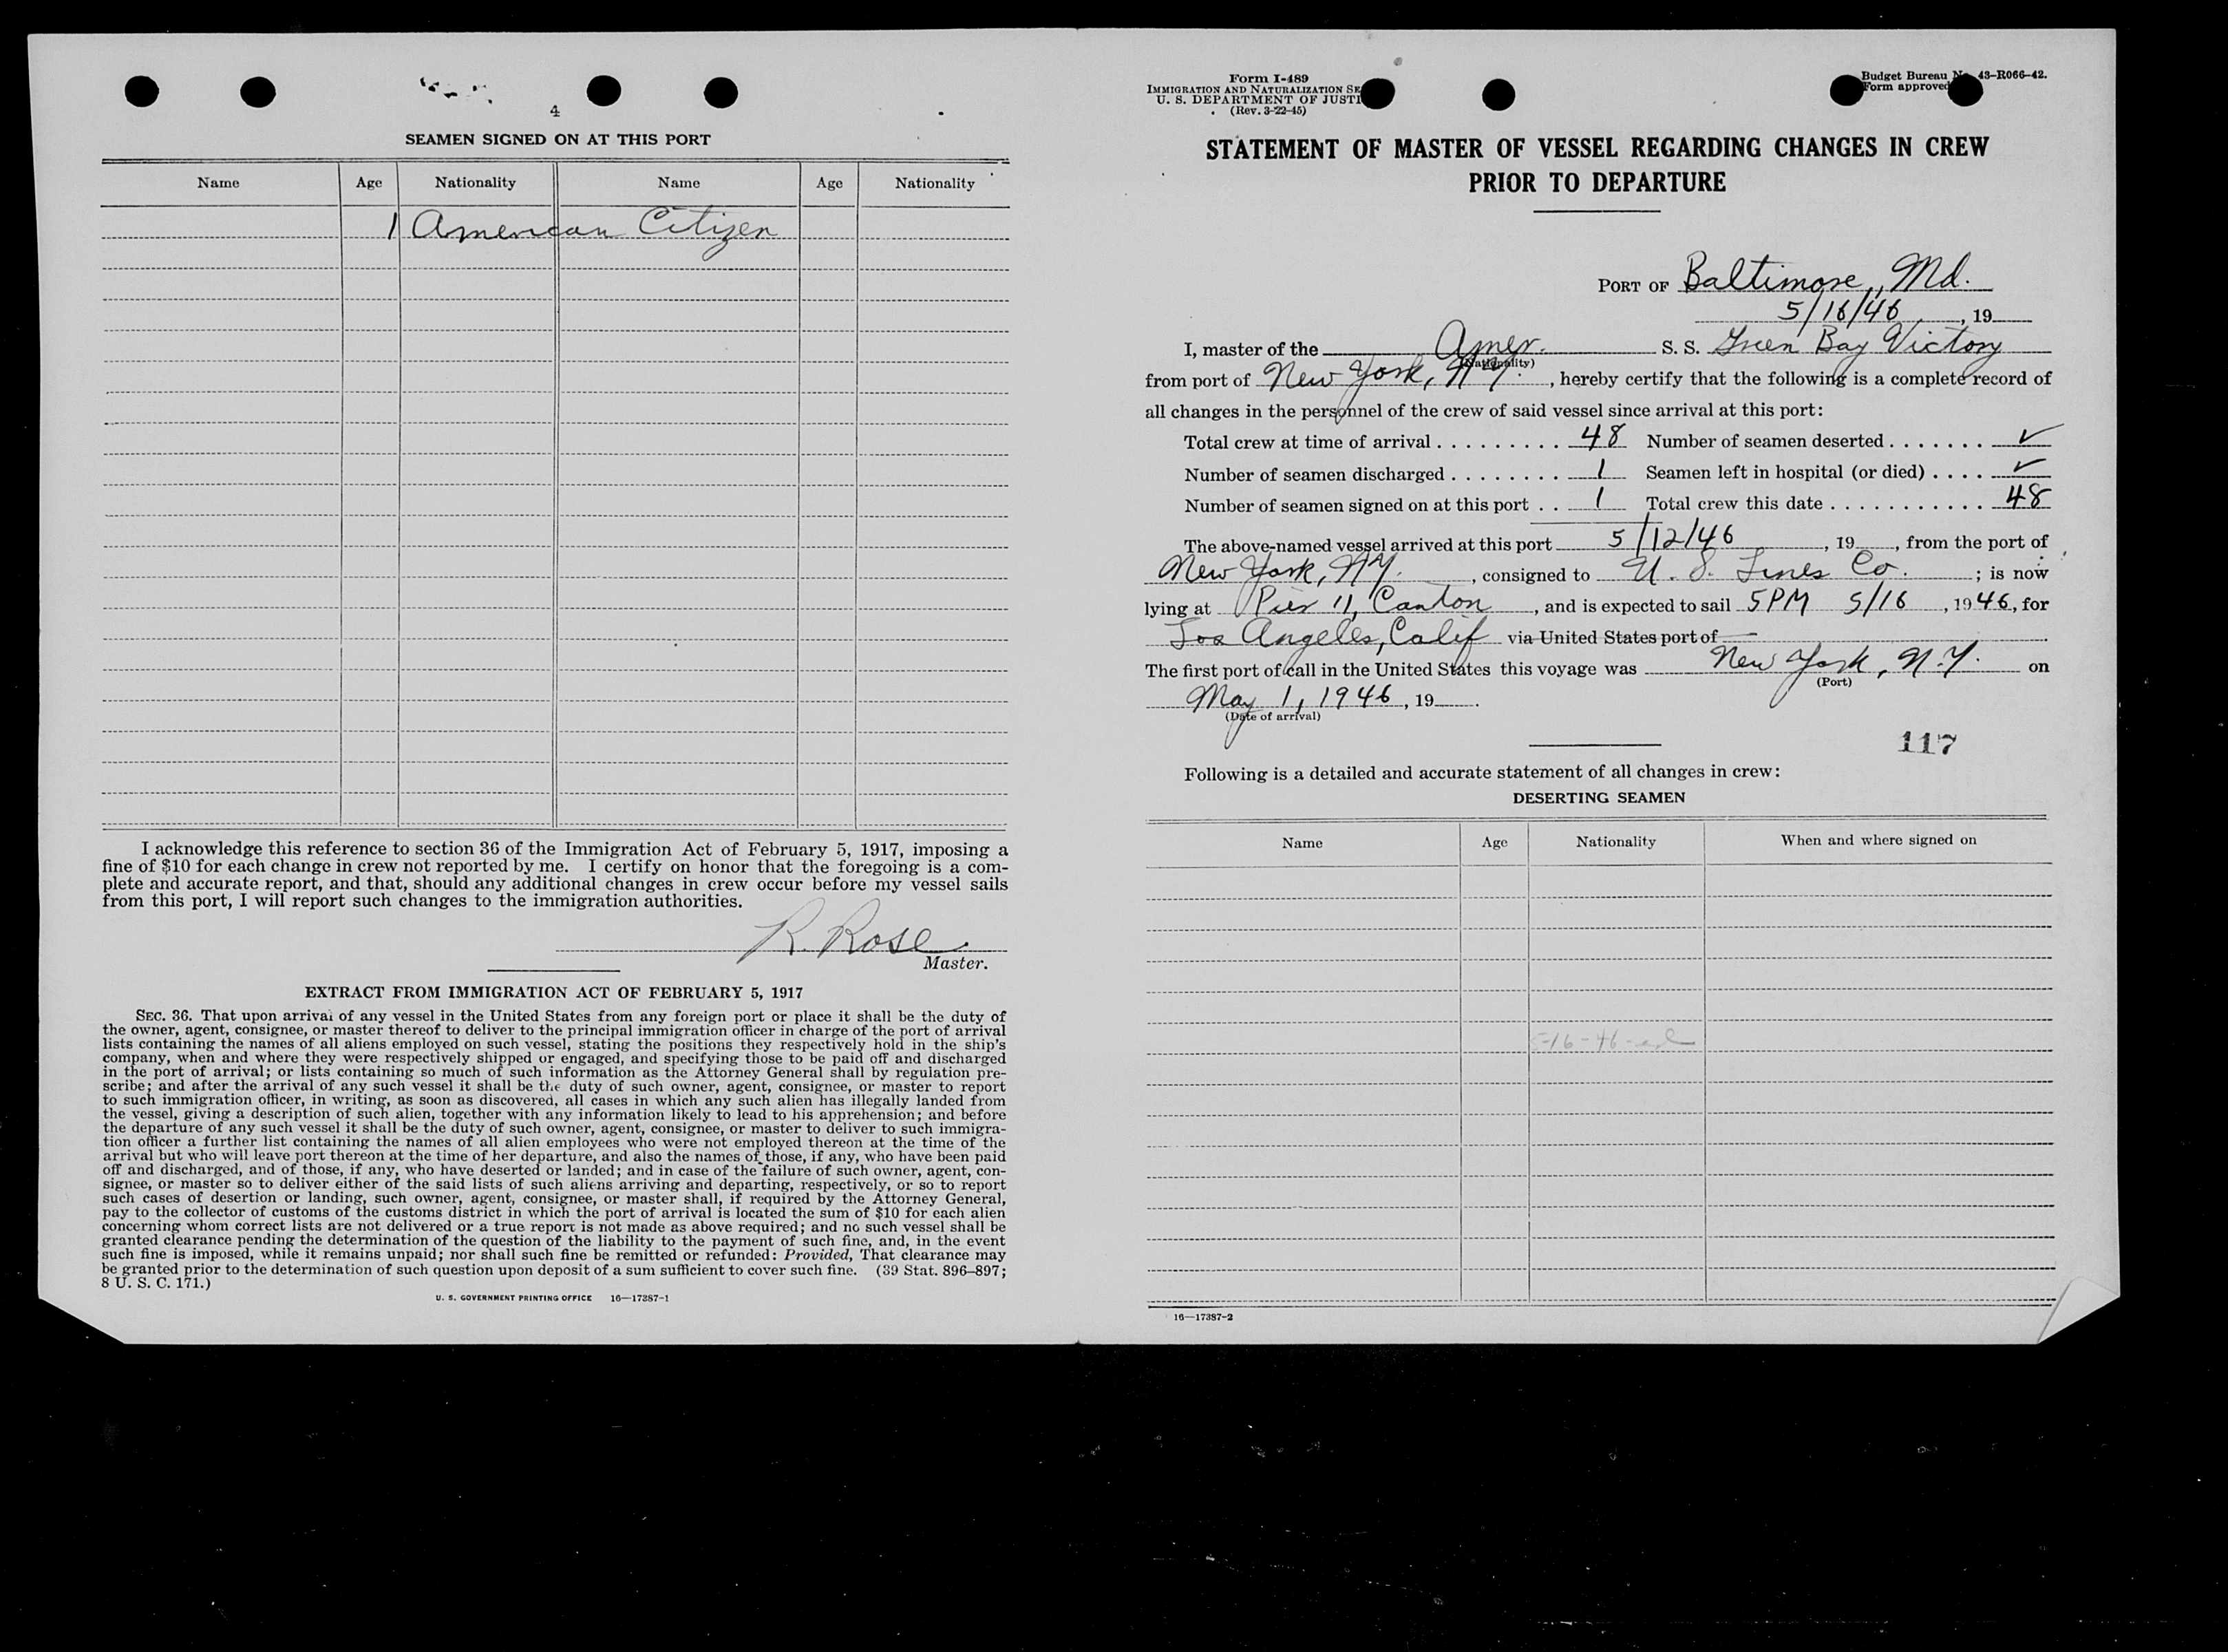 4
SEAMEN SIGNED ON AT THIS PORT
Name Age Nationality Name Age Nationality
1 American Citizen
I acknowledge this reference to section 36 of the Immigration Act of February 5, 1917, imposing a
fine of $10 for each change in crew not reported by me. I certify on honor that the foregoing is a com-
plete and accurate report, and that, should any additional changes in crew occur before my vessel sails
from this port, I will report such changes to the immigration authorities.
R. Rose
Master.
EXTRACT FROM IMMIGRATION ACT OF FEBRUARY 5, 1917
SEC. 36. That upon arrival of any vessel in the United States from any foreign port or place it shall be the duty of
the owner, agent, consignee, or master thereof to deliver to the principal immigration officer in charge of the port of arrival
lists containing the names of all aliens employed on such vessel, stating the positions they respectively hold in the ship's
company, when and where they were respectively shipped or engaged, and specifying those to be paid off and discharged
in the port of arrival; or lists containing so much of such information as the Attorney General shall by regulation pre-
scribe; and after the arrival of any such vessel it shall be the duty of such owner, agent, consignee, or master to report
to such immigration officer, in writing, as soon as discovered, all cases in which any such alien has illegally landed from
the vessel, giving a description of such alien, together with any information likely to lead to his apprehension; and before
the departure of any such vessel it shall be the duty of such owner, agent, consignee, or master to deliver to such immigra-
tion officer a further list containing the names of all alien employees who were not employed thereon at the time of the
arrival but who will leave port thereon at the time of her departure, and also the names of those, if any, who have been paid
off and discharged, and of those, if any, who have deserted or landed; and in case of the failure of such owner, agent, con-
signee, or master so to deliver either of the said lists of such aliens arriving and departing, respectively, or so to report
such cases of desertion or landing, such owner, agent, consignee, or master shall, if required by the Attorney General,
pay to the collector of customs of the customs district in which the port of arrival is located the sum of $10 for each alien
concerning whom correct lists are not delivered or a true report is not made as above required; and no such vessel shall be
granted clearance pending the determination of the question of the liability to the payment of such fine, and, in the event
such fine is imposed, while it remains unpaid; nor shall such fine be remitted or refunded: Provided, That clearance may
be granted prior to the determination of such question upon deposit of a sum sufficient to cover such fine. (39 Stat. 896–897;
8 U. S. C. 171.)
U. S. GOVERNMENT PRINTING OFFICE 16—17387-1
Form I-489
IMMIGRATION AND NATURALIZATION SE
U. S. DEPARTMENT OF JUSTI
(Rev. 3-22-45)
Budget Bureau N 43–R066–42.
Form approved
STATEMENT OF MASTER OF VESSEL REGARDING CHANGES IN CREW
PRIOR TO DEPARTURE
PORT OF Baltimore, Md.
5/16/46, 19
I, master of the Amer. S. S. Green Bay Victory
(Nationality)
from port of New York, N.Y., hereby certify that the following is a complete record of
all changes in the personnel of the crew of said vessel since arrival at this port:
Total crew at time of arrival . . . . . . . . . 48 Number of seamen deserted . . . . . . . ✓
Number of seamen discharged . . . . . . . . 1 Seamen left in hospital (or died) . . . . ✓
Number of seamen signed on at this port . . 1 Total crew this date . . . . . . . . . . . 48
The above-named vessel arrived at this port 5/12/46, 19, from the port of
New York, NY., consigned to U. S. Lines Co.; is now
lying at Pier 11, Canton, and is expected to sail 5PM 5/16, 1946, for
Los Angeles, Calif via United States port of —
The first port of call in the United States this voyage was New York, N.Y. on
(Port)
May 1, 1946, 19.
(Date of arrival)
117
Following is a detailed and accurate statement of all changes in crew:
DESERTING SEAMEN
Name Age Nationality When and where signed on
5-16-46
16—17387-2